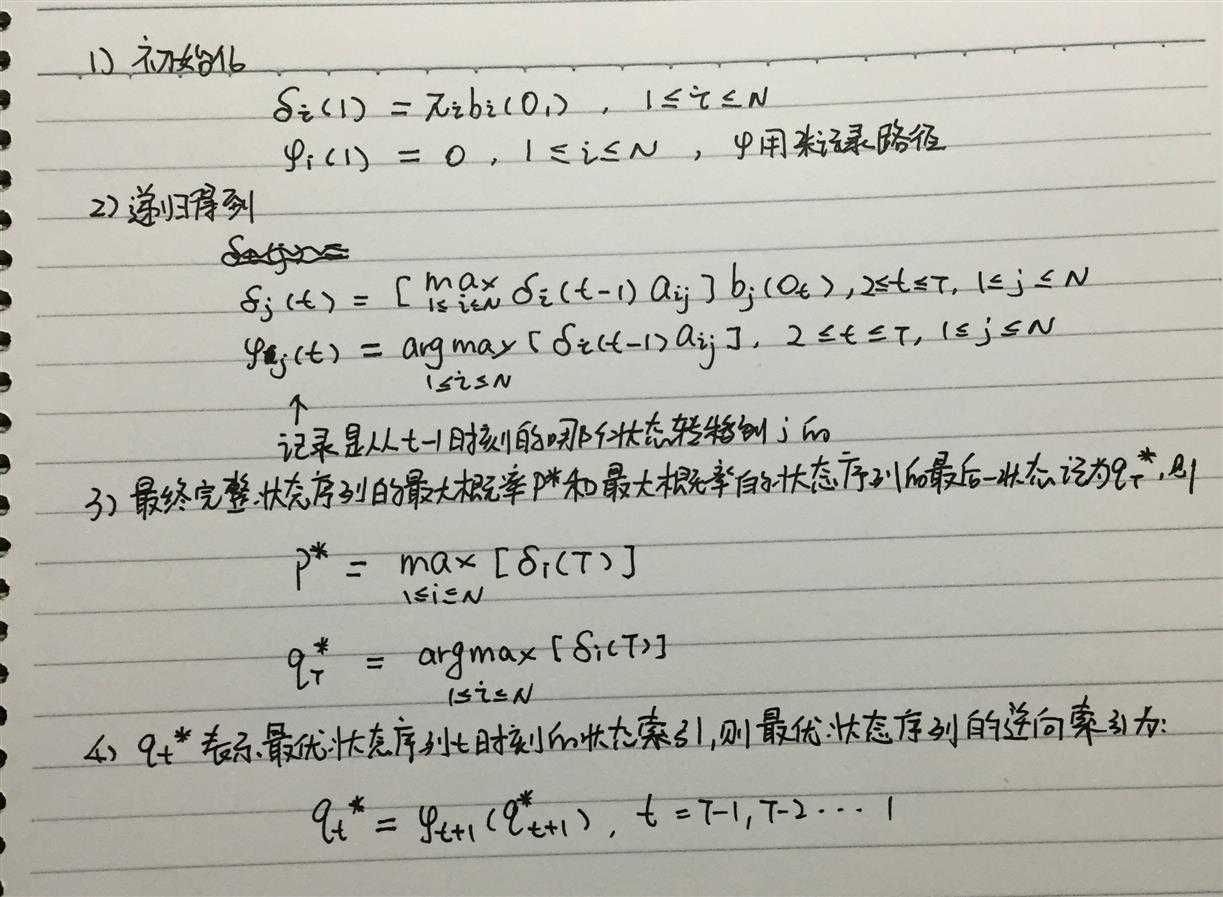 1) 初始化
δi(1) = πibi(O1) , 1≤i≤N
φi(1) = 0 , 1≤i≤N , φ用来记录路径
2) 递归得到
δj(t) = [ max 1≤i≤N δi(t-1) aij ] bj(Ot) , 2≤t≤T, 1≤j≤N
φj(t) = argmax 1≤i≤N [ δi(t-1) aij ] , 2≤t≤T, 1≤j≤N
↑
记录是从t-1时刻的哪个状态转移到j的
3) 最终完整状态序列的最大概率P*和最大概率的状态序列的最后一状态记为qT*,则
P* = max 1≤i≤N [δi(T)]
qT* = argmax 1≤i≤N [δi(T)]
4) qt*表示最优状态序列t时刻的状态索引,则最优状态序列的逆向索引为:
qt* = φt+1(q*t+1) , t = T-1, T-2 ··· 1